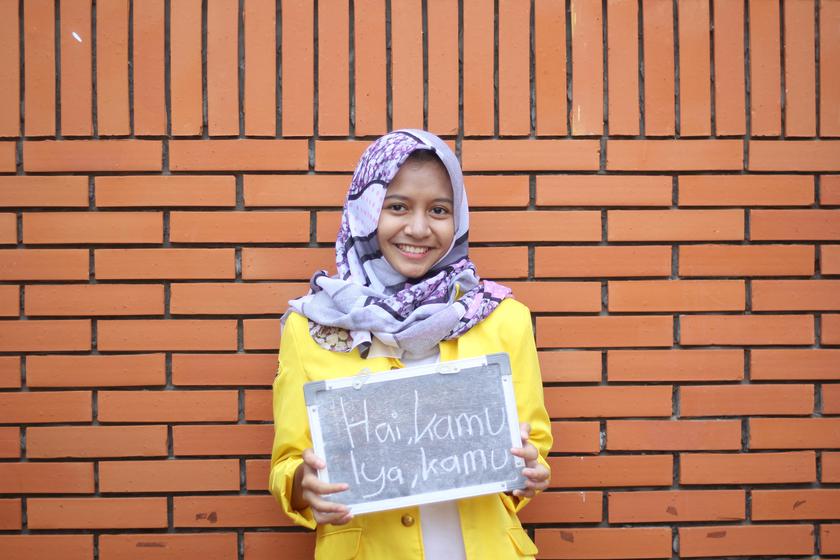 Hai, kamu
Iya, kamu